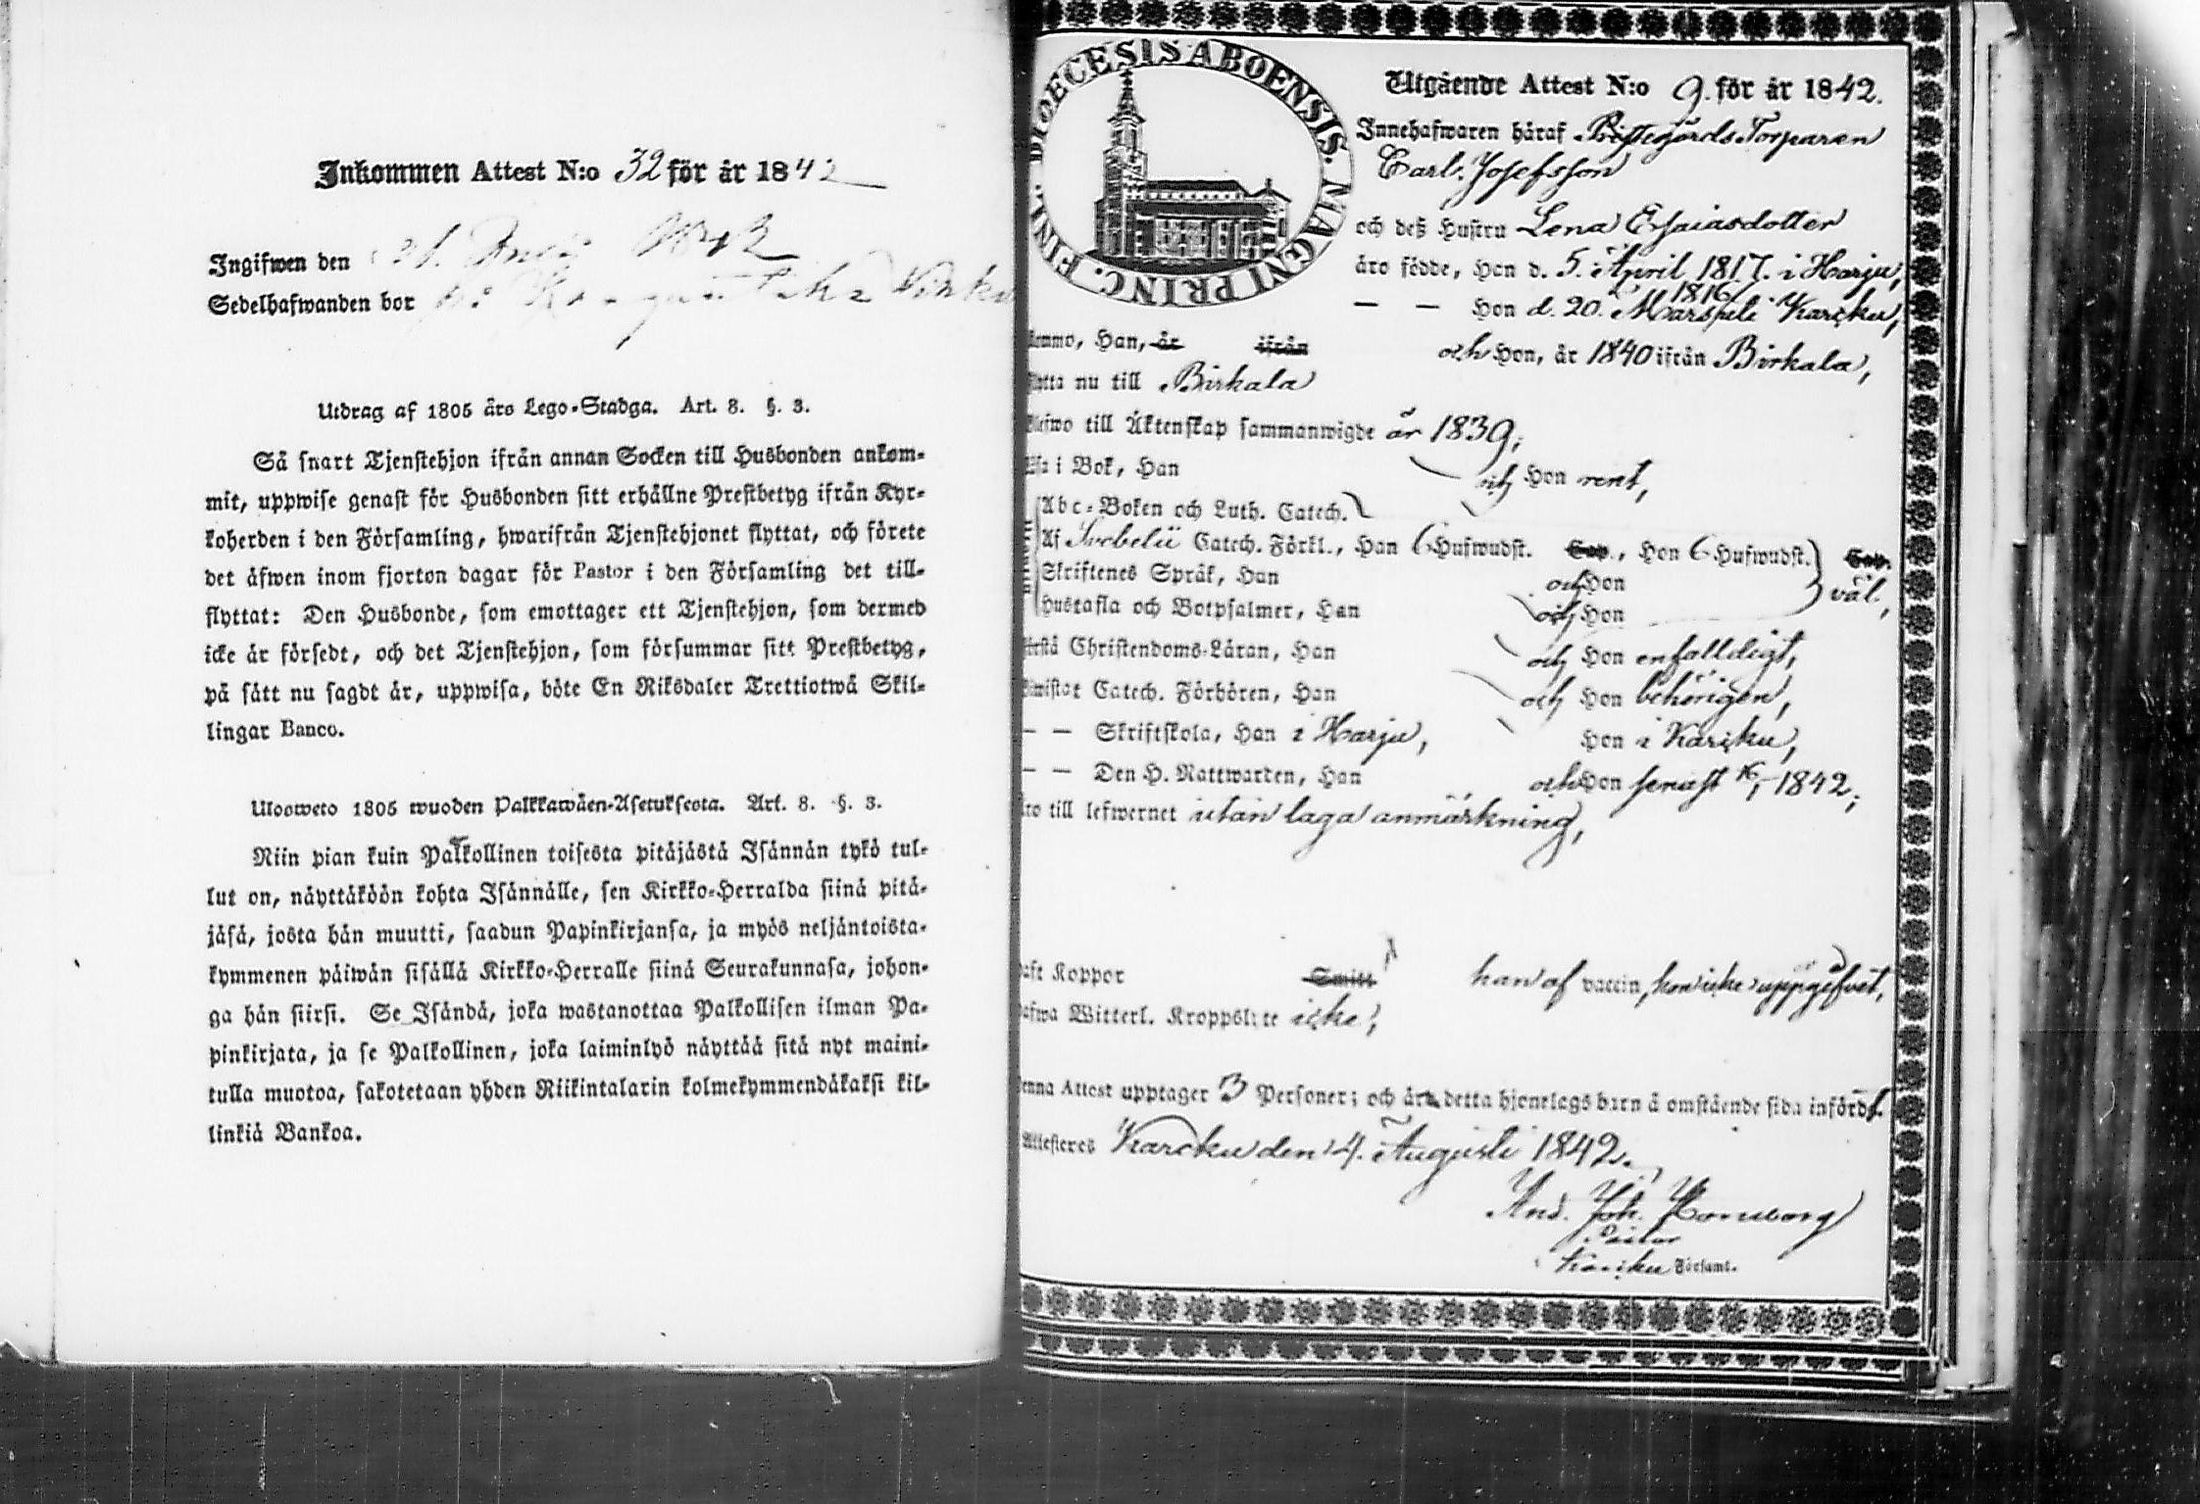 Inkommen Attest N:o 32 för år 1842
Ingifwen den
Sedelhafwanden bor
Utdrag af 1805 års Lego-Stadga. Art. 8. §. 3.
Så snart Tjenstehjon ifrån annan Socken till Husbonden ankom-
mit, uppwise genast för Husbonden sitt erhållne Prestbetyg ifrån Kyr-
koherden i den Församling, hwarifrån Tjenstehjonet flyttat, och förete
det äfwen inom fjorton dagar för Pastor i den Församling det till-
flyttat: Den Husbonde, som emottager ett Tjenstehjon, som dermed
icke är försedt, och det Tjenstehjon, som försummar sitt Prestbetyg,
på sätt nu sagdt är, uppwisa, böte En Riksdaler Trettiotwå Skil-
lingar Banco.
Ulosweto 1805 wuoden Palkkawäen-Asetuksesta. Art. 8. §. 3.
Niin pian kuin Palkollinen toisesta pitäjästä Isännän tykö tul-
lut on, näyttäköön kohta Isännälle, sen Kirkko-Herralda siinä pitä-
jäsä, josta hän muutti, saadun Papinkirjansa, ja myös neljäntoista-
kymmenen päiwän sisällä Kirkko-Herralle siinä Seurakunnasa, johon-
ga hän siirsi. Se Isändä, joka wastanottaa Palkollisen ilman Pa-
pinkirjata, ja se Palkollinen, joka laiminlyö näyttää sitä nyt maini-
tulla muotoa, sakotetaan yhden Riikintalarin kolmekymmendäkaksi kil-
linkiä Bankoa.
DIOECESIS ABOENSIS. MAGNI PRINC. FINL.
Utgående Attest N:o 9. för år 1842.
Innehafwaren häraf Torparen
Carl Josefsson
och deß Hustru Lena Esaiasdotter
äro födde, Han d. 5. April 1817. i Harju,
— — Hon d. 20. Mars 1816 i Karcku,
kommo, Han, år ifrån och Hon, år 1840 ifrån Birkala,
flytta nu till Birkala
Blefwo till Äktenskap sammanwigde år 1839;
läsa i Bok, Han och Hon rent,
Abc-Boken och Luth. Catech.
Af Svebelii Catech. Förkl., Han 6 Hufwudst. Cap., Hon 6 Hufwudst. Cap.
Skriftenes Språk, Han och Hon väl,
Hustafla och Botpsalmer, Han och Hon
förstå Christendoms-Läran, Han och Hon enfalldigt,
bewistat Catech. Förhören, Han och Hon behörigen,
— — Skriftskola, Han i Harju, Hon i Karcku,
— — Den H. Nattwarden, Han och Hon senast 1842;
äro till lefwernet utan laga anmärkning,
haft Koppor Smitt han af vaccin, hon icke uppgifvet,
hafwa Witterl. Kroppslyte icke,
Denna Attest upptager 3 Personer; och är detta hjonelags barn å omstående sida infördt.
Attesteres Karcku den 4. Augusti 1842.
And. Joh.
Pastor
Karcku Församl.